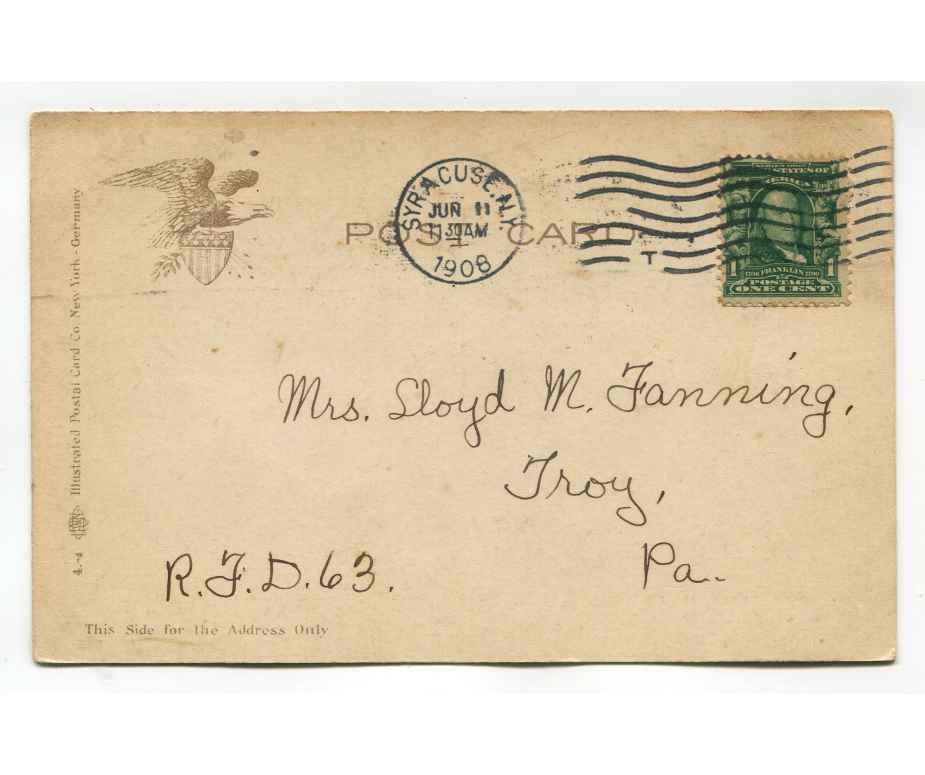 SYRACUSE, N.Y.
JUN 11
1130AM
1908
POST CARD
T
STATES OF
1
1706 FRANKLIN 1790
1
POSTAGE
ONE CENT
Mrs. Lloyd M. Fanning,
Troy,
Pa..
R.F.D. 63.
This Side for the Address Only
4.-4 Illustrated Postal Card Co. New York - Germany